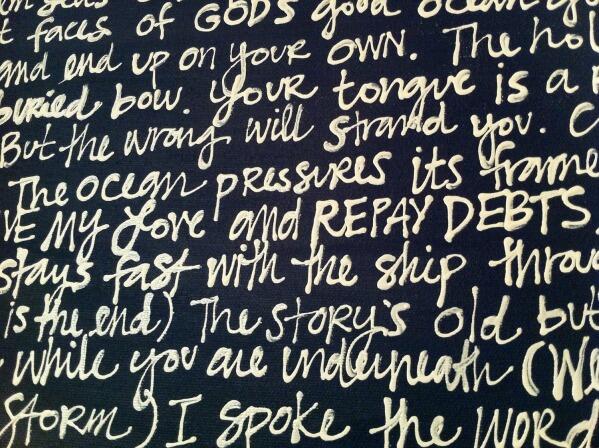 t faces of GODS good ocean g
and end up on your OWN. The ho
buried bow. your tongue is a
But the wrong will strand you. C
The ocean pressures its frame
VE MY Love and REPAY DEBTS.
stays fast with the ship throu
is the end) The STORY'S old but
while you are underneath (We
STORM) I spoke the WORD